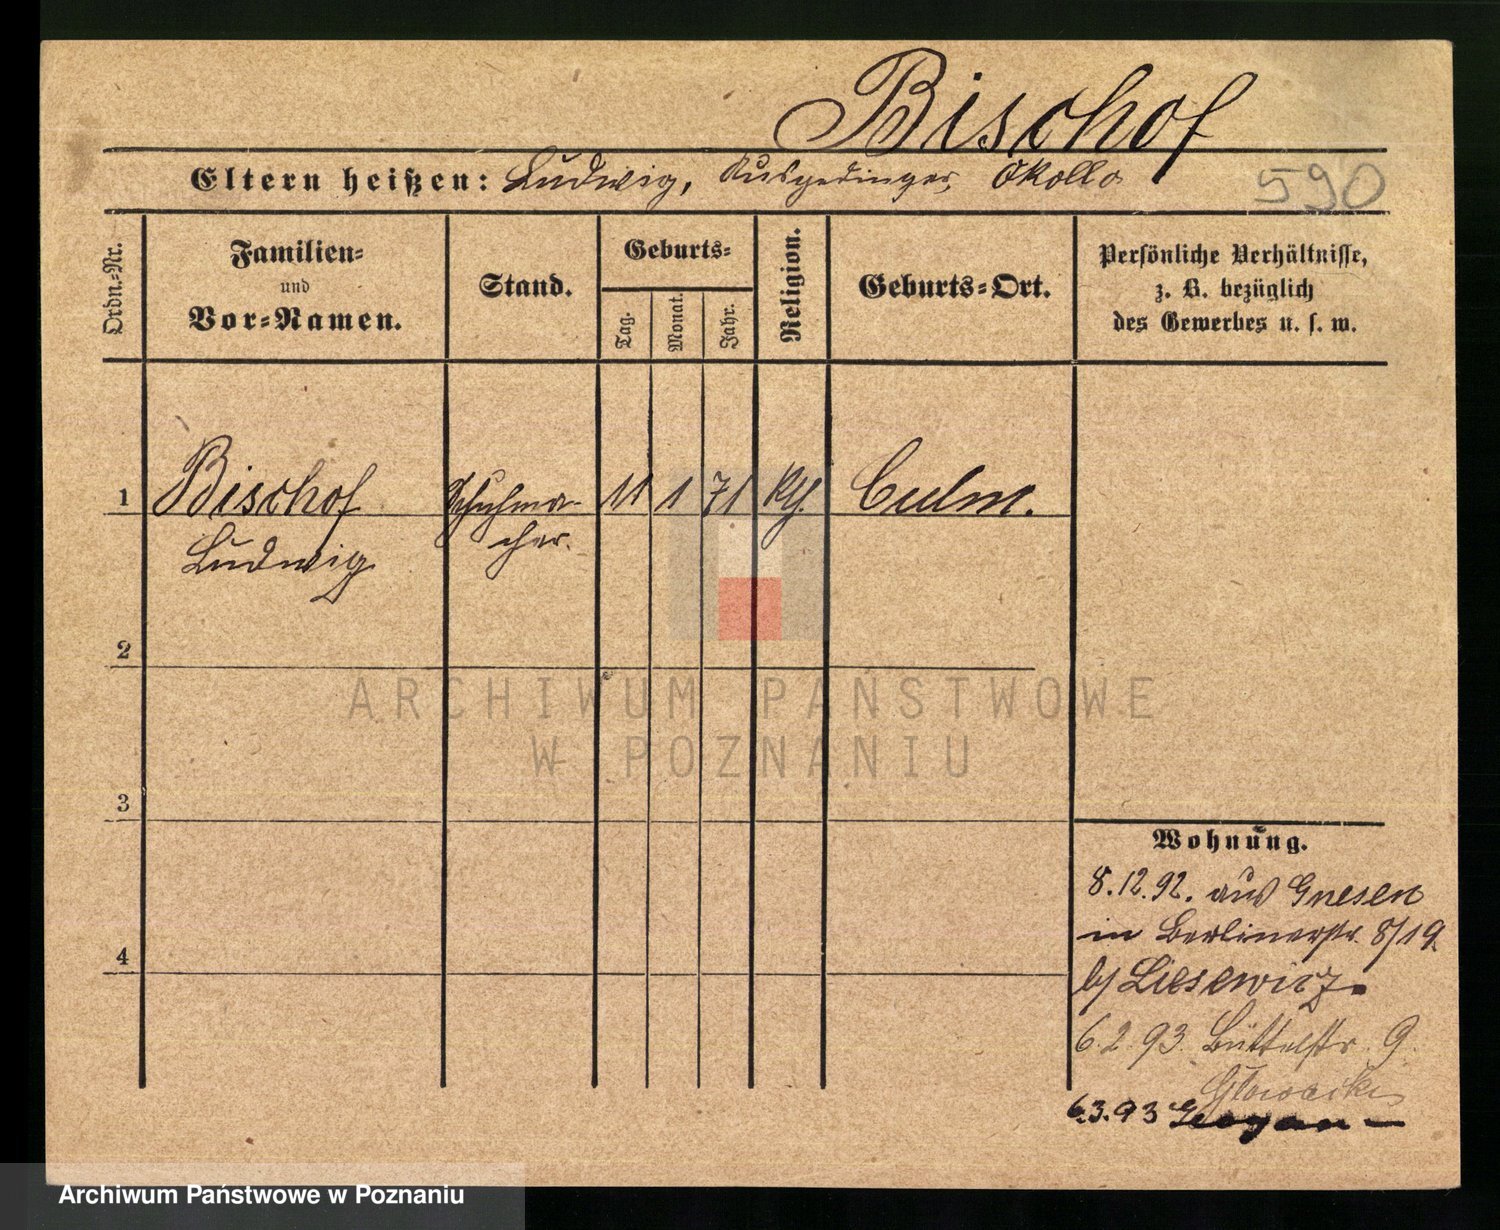 Bischof
Eltern heißen: Ludwig, Ausgedinger, Okollo
590
Ordn.-Nr.
Familien-
und
Vor-Namen.
Stand.
Geburts-
Tag.
Monat.
Jahr.
Religion.
Geburts-Ort.
Persönliche Verhältnisse,
z. B. bezüglich
des Gewerbes u. s. w.
1 Bischof Schuhma- 11 1 71 kth. Culm.
Ludwig cher.
2
3
4
Wohnung.
8.12.92. aus Gnesen
in Berlinerstr. 8/19
b/ Liesewicz.
6.2.93. Büttelstr. 9.
6.3.93
ARCHIWUM PAŃSTWOWE
W POZNANIU
Archiwum Państwowe w Poznaniu